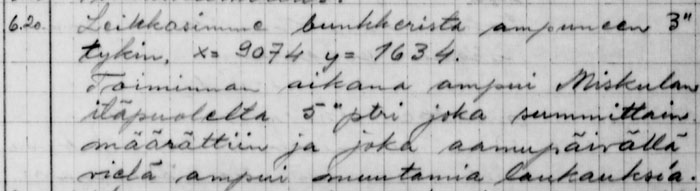 6.20. Leikkasimme bunkkerista ampuneen 3"
tykin, x= 9074 y= 1634.
Toiminnan aikana ampui Miskulan
itäpuolelta 5" ptri joka summittain
määrättiin ja joka aamupäivällä
vielä ampui muutamia laukauksia